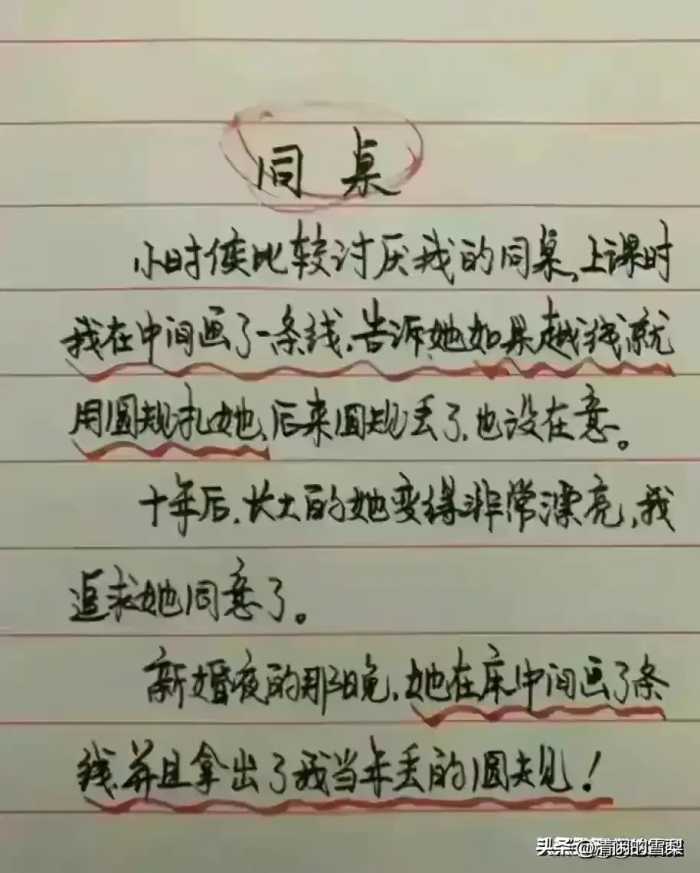 同桌
小时侯比较讨厌我的同桌,上课时
我在中间画了一条线,告诉她如果越线就
用圆规扎她,后来圆规丢了,也没在意。
十年后,长大的她变得非常漂亮,我
追求她同意了。
新婚夜的那晚,她在床中间画了条
线,并且拿出了我当年丢的圆规!
头条
@清闲的雪梨